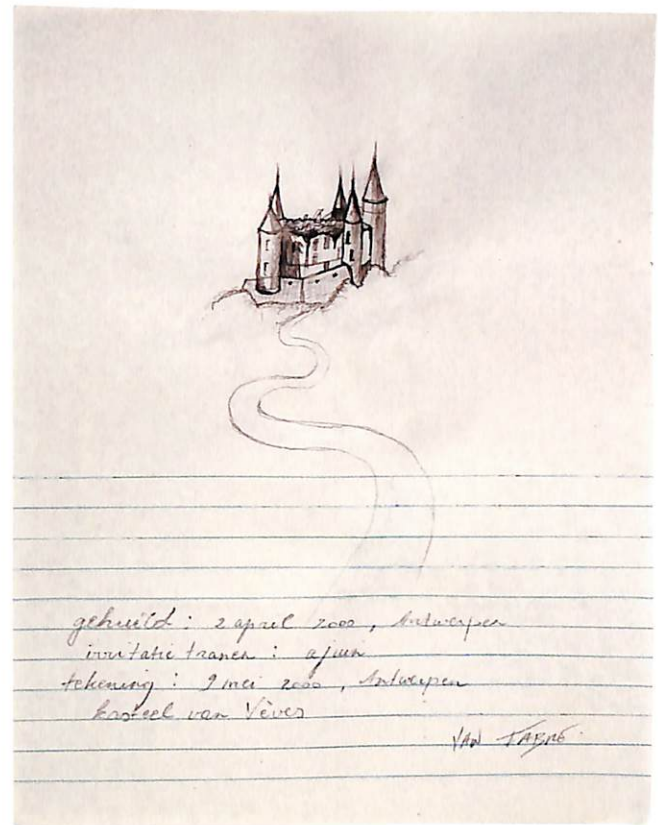 gehuild : 2 april 2000, Antwerpen
irritatie tranen : ajuin
tekening : 9 mei 2000, Antwerpen
kasteel van Vèves
JAN FABRE